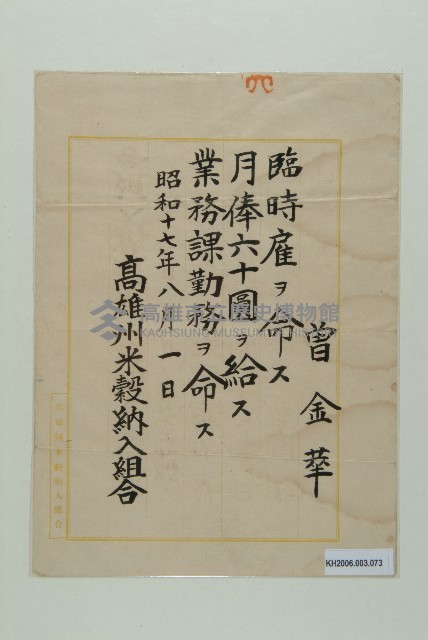 曽金華
臨時雇ヲ命ス
月俸六十圓ヲ給ス
業務課勤務ヲ命ス
昭和十七年八月一日
高雄州米穀納入組合
高雄州米穀納入組合
高雄市立歷史博物館
KAOHSIUNG MUSEUM OF HISTORY
KH2006.003.073